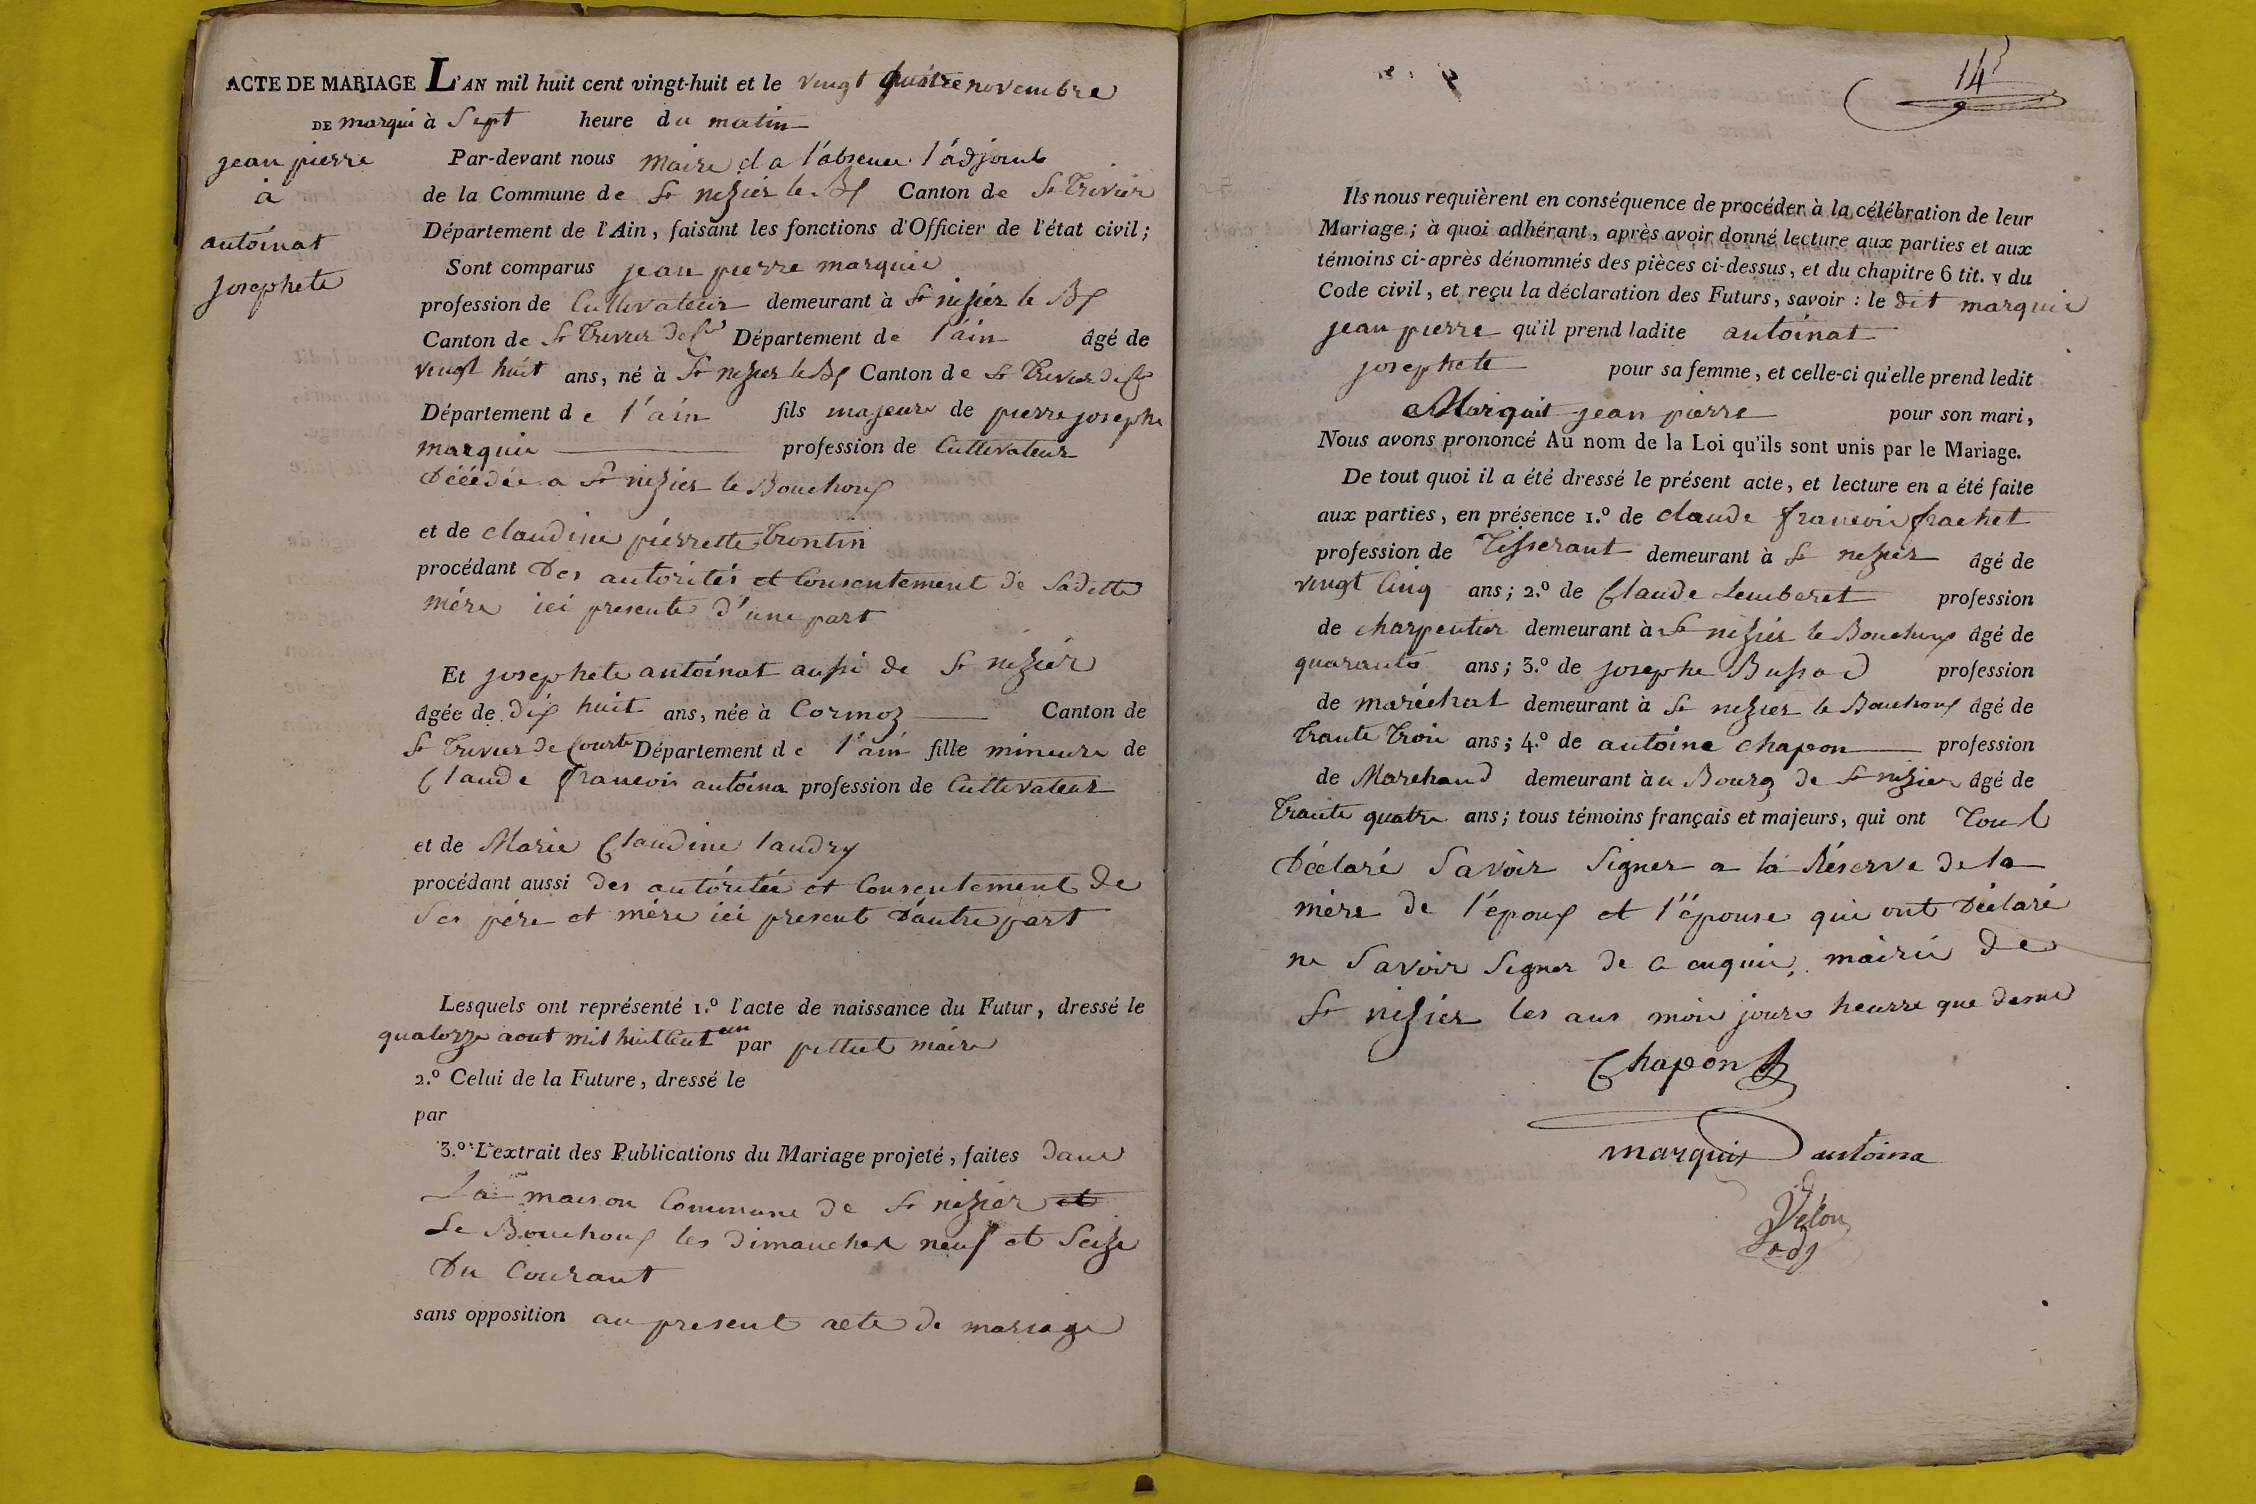 ACTE DE MARIAGE L'AN mil huit cent vingt-huit et le vingt quatre novembre
DE marqui à Sept heure du matin
jean pierre
à
antoinat
josephete
Par-devant nous maire et a l'absence l'adjoint
de la Commune de St nizier le Bx Canton de St Trivier
Département de l'Ain, faisant les fonctions d'Officier de l'état civil;
Sont comparus jean pierre marquis
profession de Cultivateur demeurant à St nizier le Bx
Canton de St Trivier de Département de l'ain âgé de
vingt huit ans, né à St nizier le Bx Canton de St Trivier de
Département de l'ain fils majeure de pierre josephe
marquis profession de Cultivateur
Décédée a St nizier le Bouchoux
et de claudine pierrette Trontin
procédant Des autorités et Consentement de Sadette
mére ici presente d'une part
Et josephete antoinat aussi de St nizier
âgée de dix huit ans, née à Cormoz Canton de
St Trivier de Courte Département de l'ain fille mineure de
Claude francois antoina profession de Cultivateur
et de Marie Claudine Landry
procédant aussi Des autórités et Consentement de
Ses pére et mére ici present D'autre part
Lesquels ont représenté 1.º l'acte de naissance du Futur, dressé le
quatorze aout mil huit Cent un par maire
2.º Celui de la Future, dressé le
par
3.º L'extrait des Publications du Mariage projeté, faites dans
La maison Commune de St nizier et
Le Bouchoux les dimanches neuf et Seize
Du Courant
sans opposition au present acte de mariage
14
Ils nous requièrent en conséquence de procéder à la célébration de leur
Mariage; à quoi adhérant, après avoir donné lecture aux parties et aux
témoins ci-après dénommés des pièces ci-dessus, et du chapitre 6 tit. v du
Code civil, et reçu la déclaration des Futurs, savoir: le dit marquis
jean pierre qu'il prend ladite antoinat
josephete pour sa femme, et celle-ci qu'elle prend ledit
Marquit jean pierre pour son mari,
Nous avons prononcé Au nom de la Loi qu'ils sont unis par le Mariage.
De tout quoi il a été dressé le présent acte, et lecture en a été faite
aux parties, en présence 1.º de claude francois frachet
profession de Tisserant demeurant à St nizier âgé de
vingt Cinq ans; 2.º de Claude Lemberet profession
de charpentier demeurant à St nizier le Bouchoux âgé de
quarante ans; 3.º de josephe Bussod profession
de maréchat demeurant à St nizier le Bouchoux âgé de
Trante Trois ans; 4.º de antoine chapon profession
de Marchand demeurant à u Bourg de St nizier âgé de
Trante quatre ans; tous témoins français et majeurs, qui ont Tous
Déclaré Savoir Signer a la Réserve de la
mére de l'epoux et l'épouse qui ont Déclaré
ne Savoir Signer de a enquis, mairie de
St nizier les ans mois jours heurre que dessus
Chapon
marquis antoina
Velon
adj